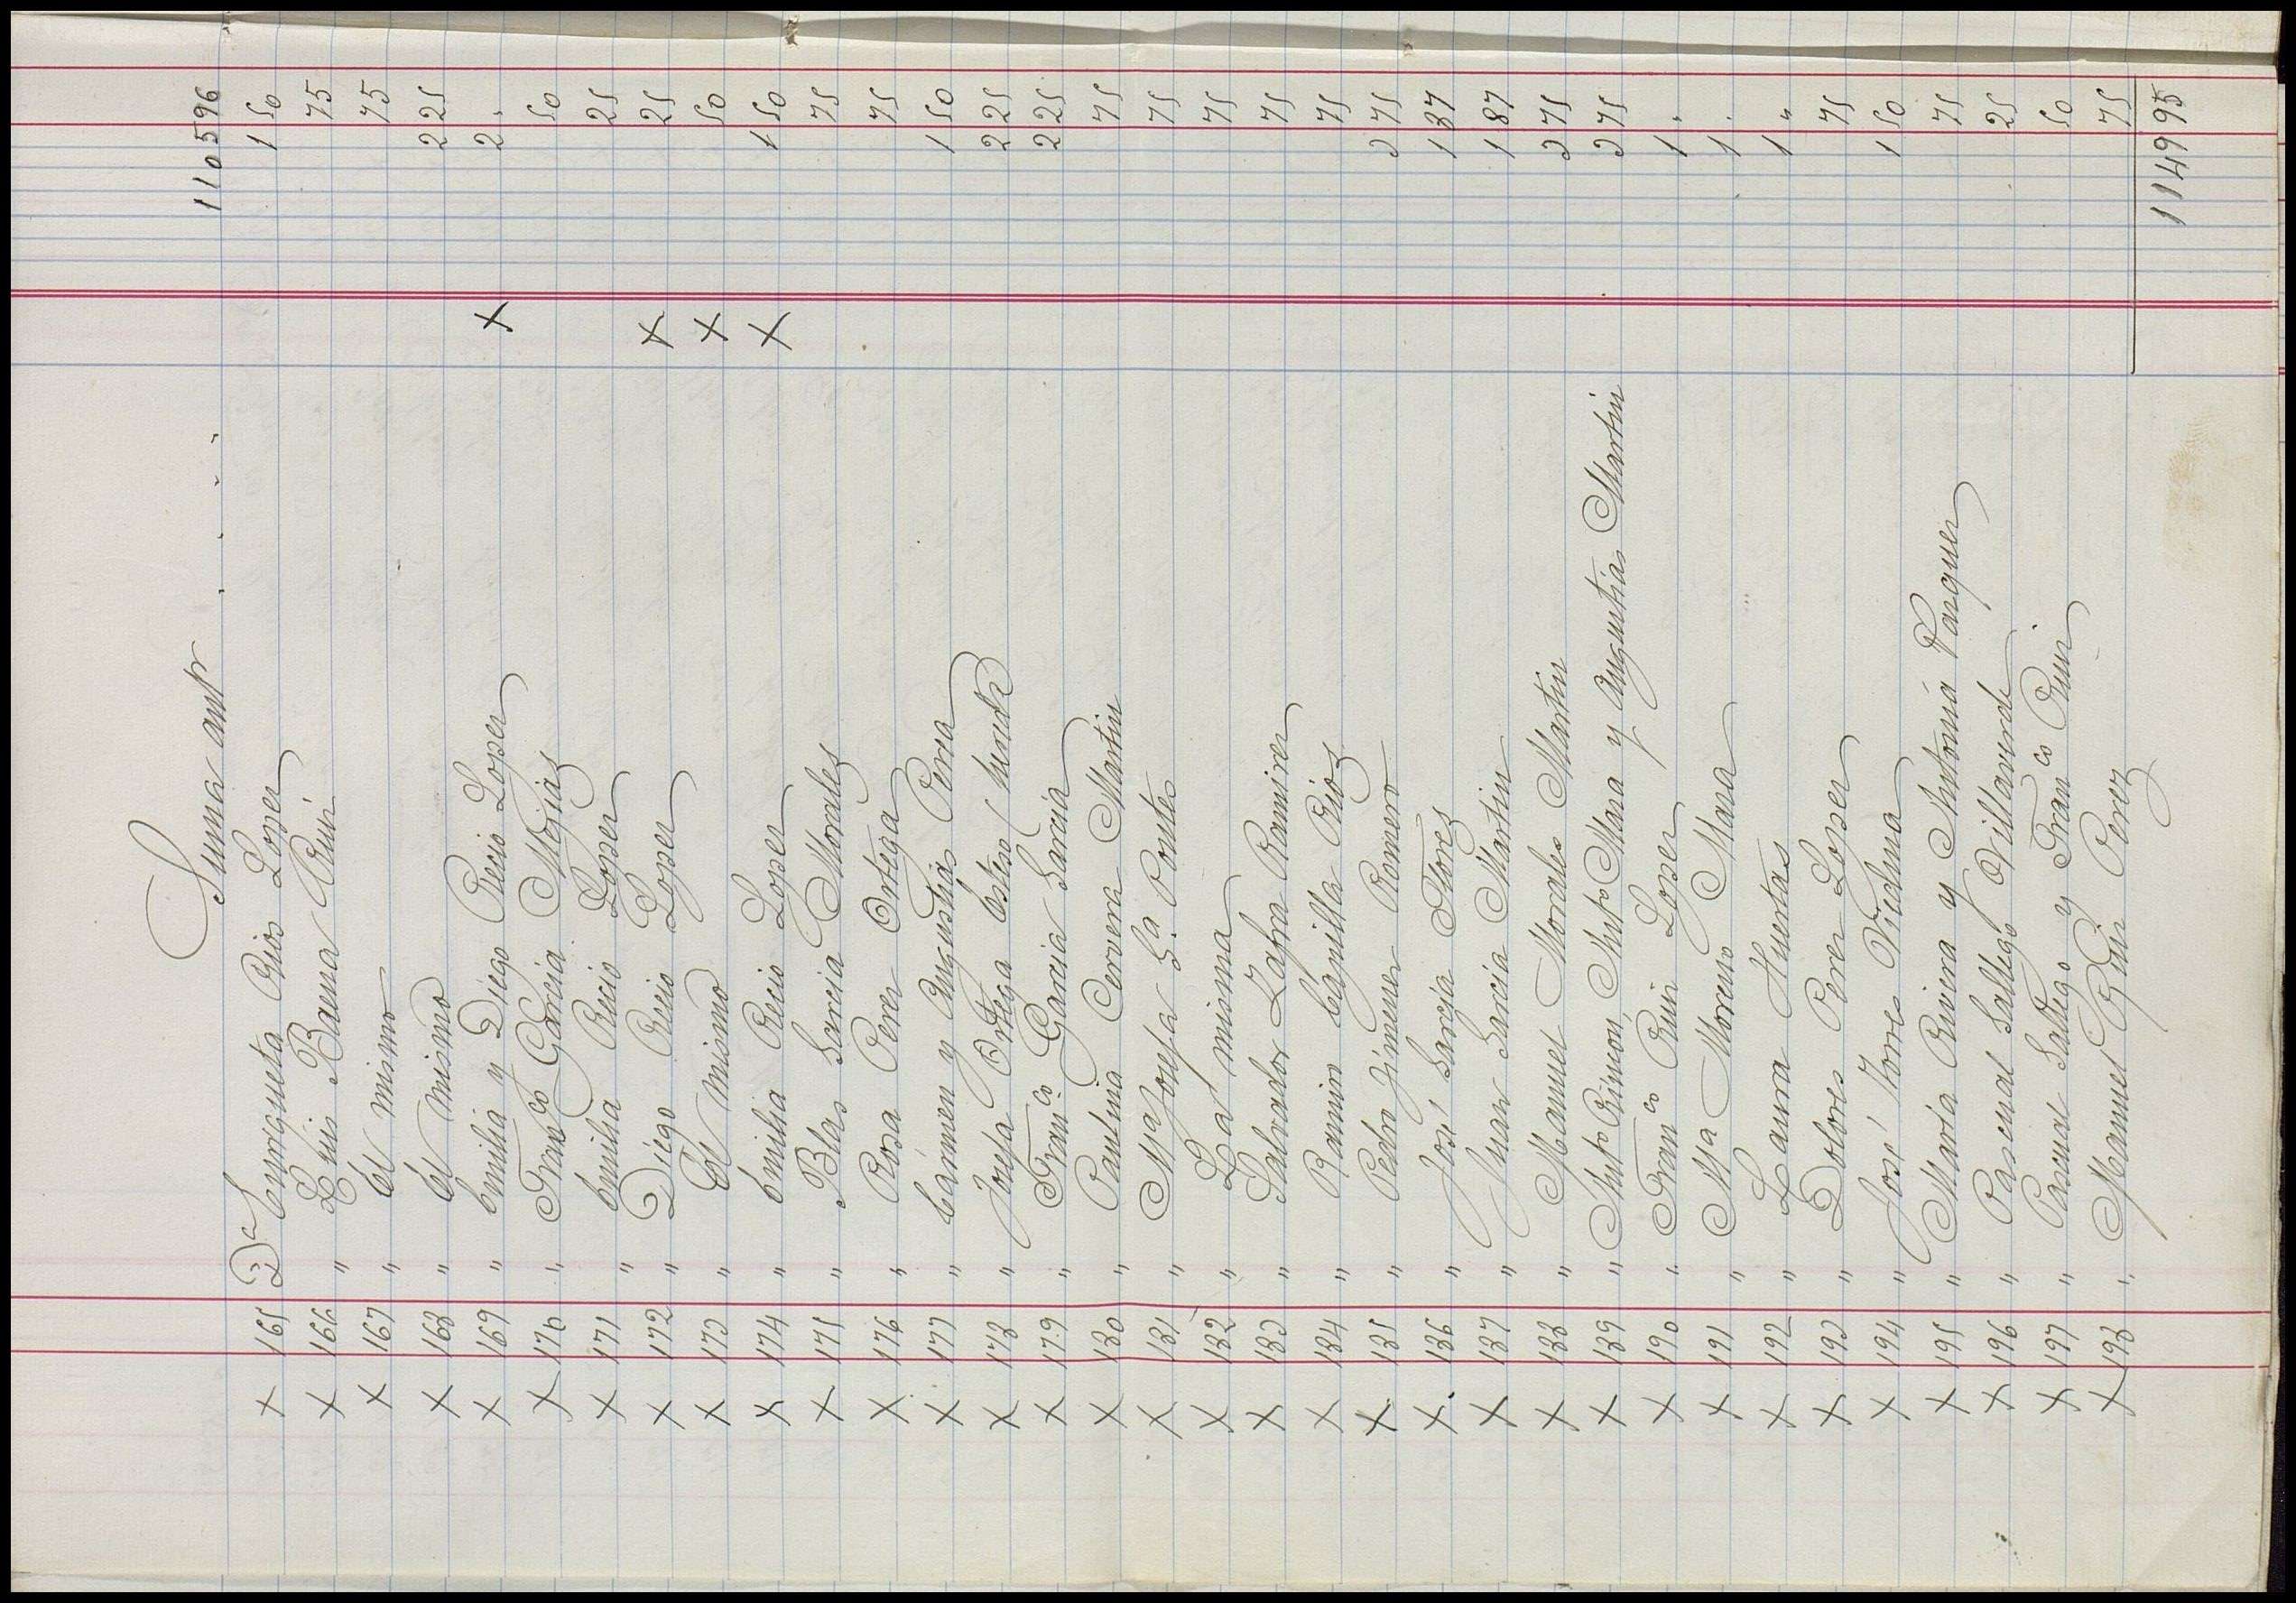 Suma antr . . . . 1105 96
X 165 Dª Enriqueta Rios Lopez 1 50
X 166 " Luis Baena Ruiz 75
X 167 " El mismo 75
X 168 " El mismo 2 25
X 169 " Emilia y Diego Recio Lopez X 2 "
X 170 " Franco Garcia Mejias 50
X 171 " Emilia Recio Lopez 25
X 172 " Diego Recio Lopez X 25
X 173 " El mismo X 50
X 174 " Emilia Recio Lopez X 1 50
X 175 " Blas Garcia Morales 75
X 176 " Rosa Perez Ortega 75
X 177 " Cármen y Angustias Perea 1 50
X 178 " Josefa Ortega 2 25
X 179 " Fran.co Garcia Garcia 2 25
X 180 " Paulina Cervera Martin 75
X 181 " Mª Josefa Gª. Pontes 75
X 182 " La misma 75
X 183 " Salvador Zafra Ramirez 75
X 184 " Ramin Capilla Rios 75
X 185 " Pedro Jimenez Romero 3 75
X 186 " José Garcia Flores 1 87
X 187 " Juan Garcia Martin 1 87
X 188 " Manuel Morales Martin 3 75
X 189 " Antº Antº Mara y Angustias Martin 3 75
X 190 " Franco Ruiz Lopez 1 "
X 191 " Mª Moreno Mara 1 "
X 192 " Laura Huertas 1 "
X 193 " Dolores Perez Lopez 75
X 194 " José Torres Viedma 1 50
X 195 " Maria Rivera y Antonia Vasquez 75
X 196 " Pascual Gallego Villaverde 25
X 197 " Pascual Gallego y Franco Ruiz 50
X 198 " Manuel Ruiz Perez 75
1149 95